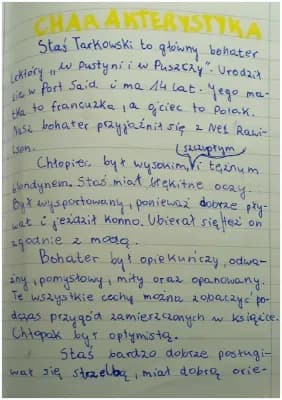 CHARAKTERYSTYKA
Staś Tarkowski to główny bohater
lektóry „w Pustyni i w Puszczy". Urodził
się w Port Said i ma 14 lat. Jego ma-
tka to francuzka, a ojciec to Polak.
Nasz bohater przyjaźnił się z Nel Rawi-
lson.
szczupłym
Chłopiec był wysokim, i tężnym
blondynem. Staś miał błękitne oczy.
Był wysportowany, ponieważ dobrze pły-
wał i jeździł konno. Ubierał się też on
zgodnie z modą.
Bohater był opiekuńczy, odwa-
żny, pomysłowy, miły oraz opanowany.
Te wszystkie cechy można zobaczyć po-
dczas przygód zamieszczonych w książce.
Chłopak był optymistą.
Staś bardzo dobrze posługi-
wał się strzelbą, miał dobrą orie-